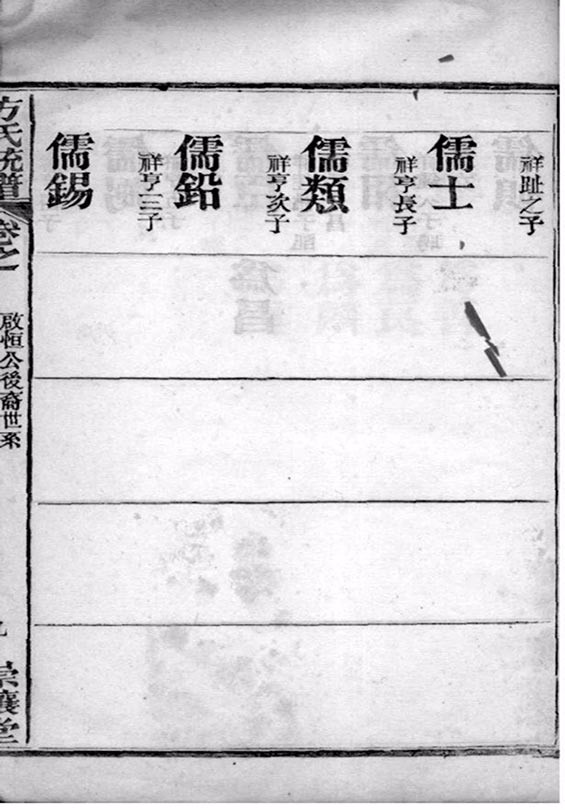 祥趾之子
儒士
祥亨長子
儒類
祥亨次子
儒鉛
祥亨三子
儒錫
方氏統譜
卷之一
啟恒公後裔世系
崇讓堂